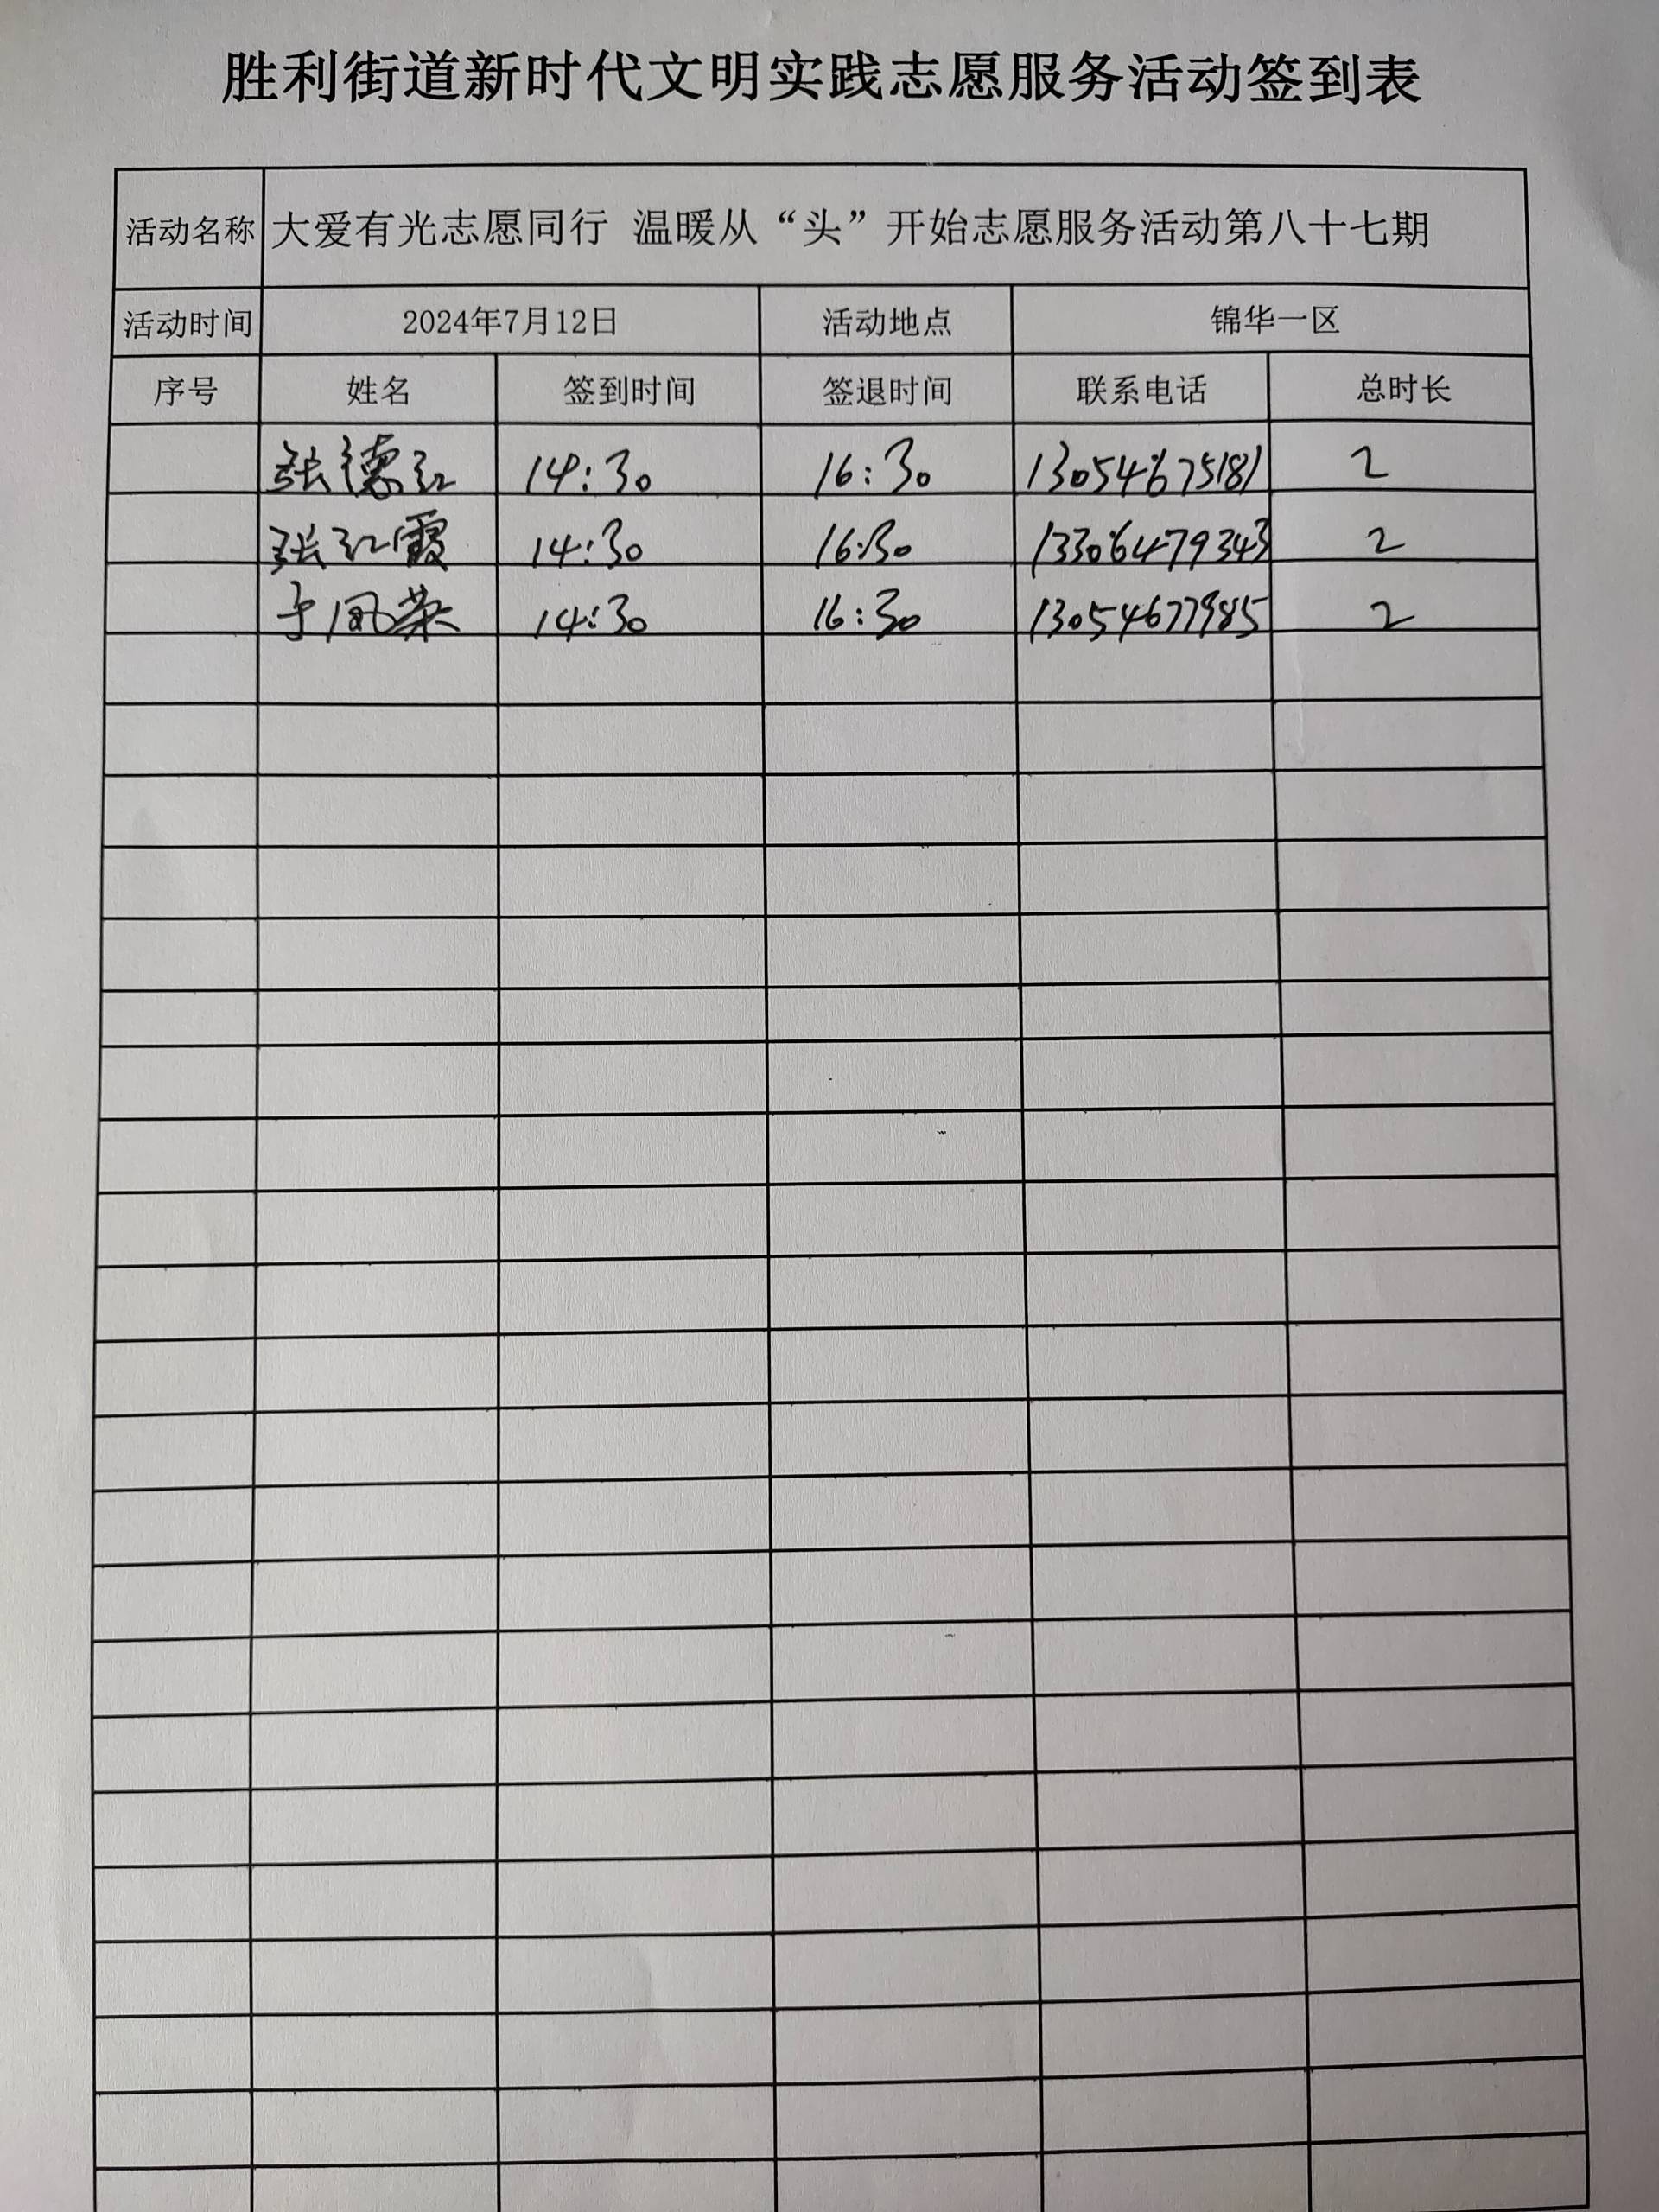 胜利街道新时代文明实践志愿服务活动签到表
活动名称 大爱有光志愿同行 温暖从“头”开始志愿服务活动第八十七期
活动时间 2024年7月12日 活动地点 锦华一区
序号 姓名 签到时间 签退时间 联系电话 总时长
张德红 14:30 16:30 13054675181 2
张红霞 14:30 16:30 13306479343 2
于凤荣 14:30 16:30 13054677985 2